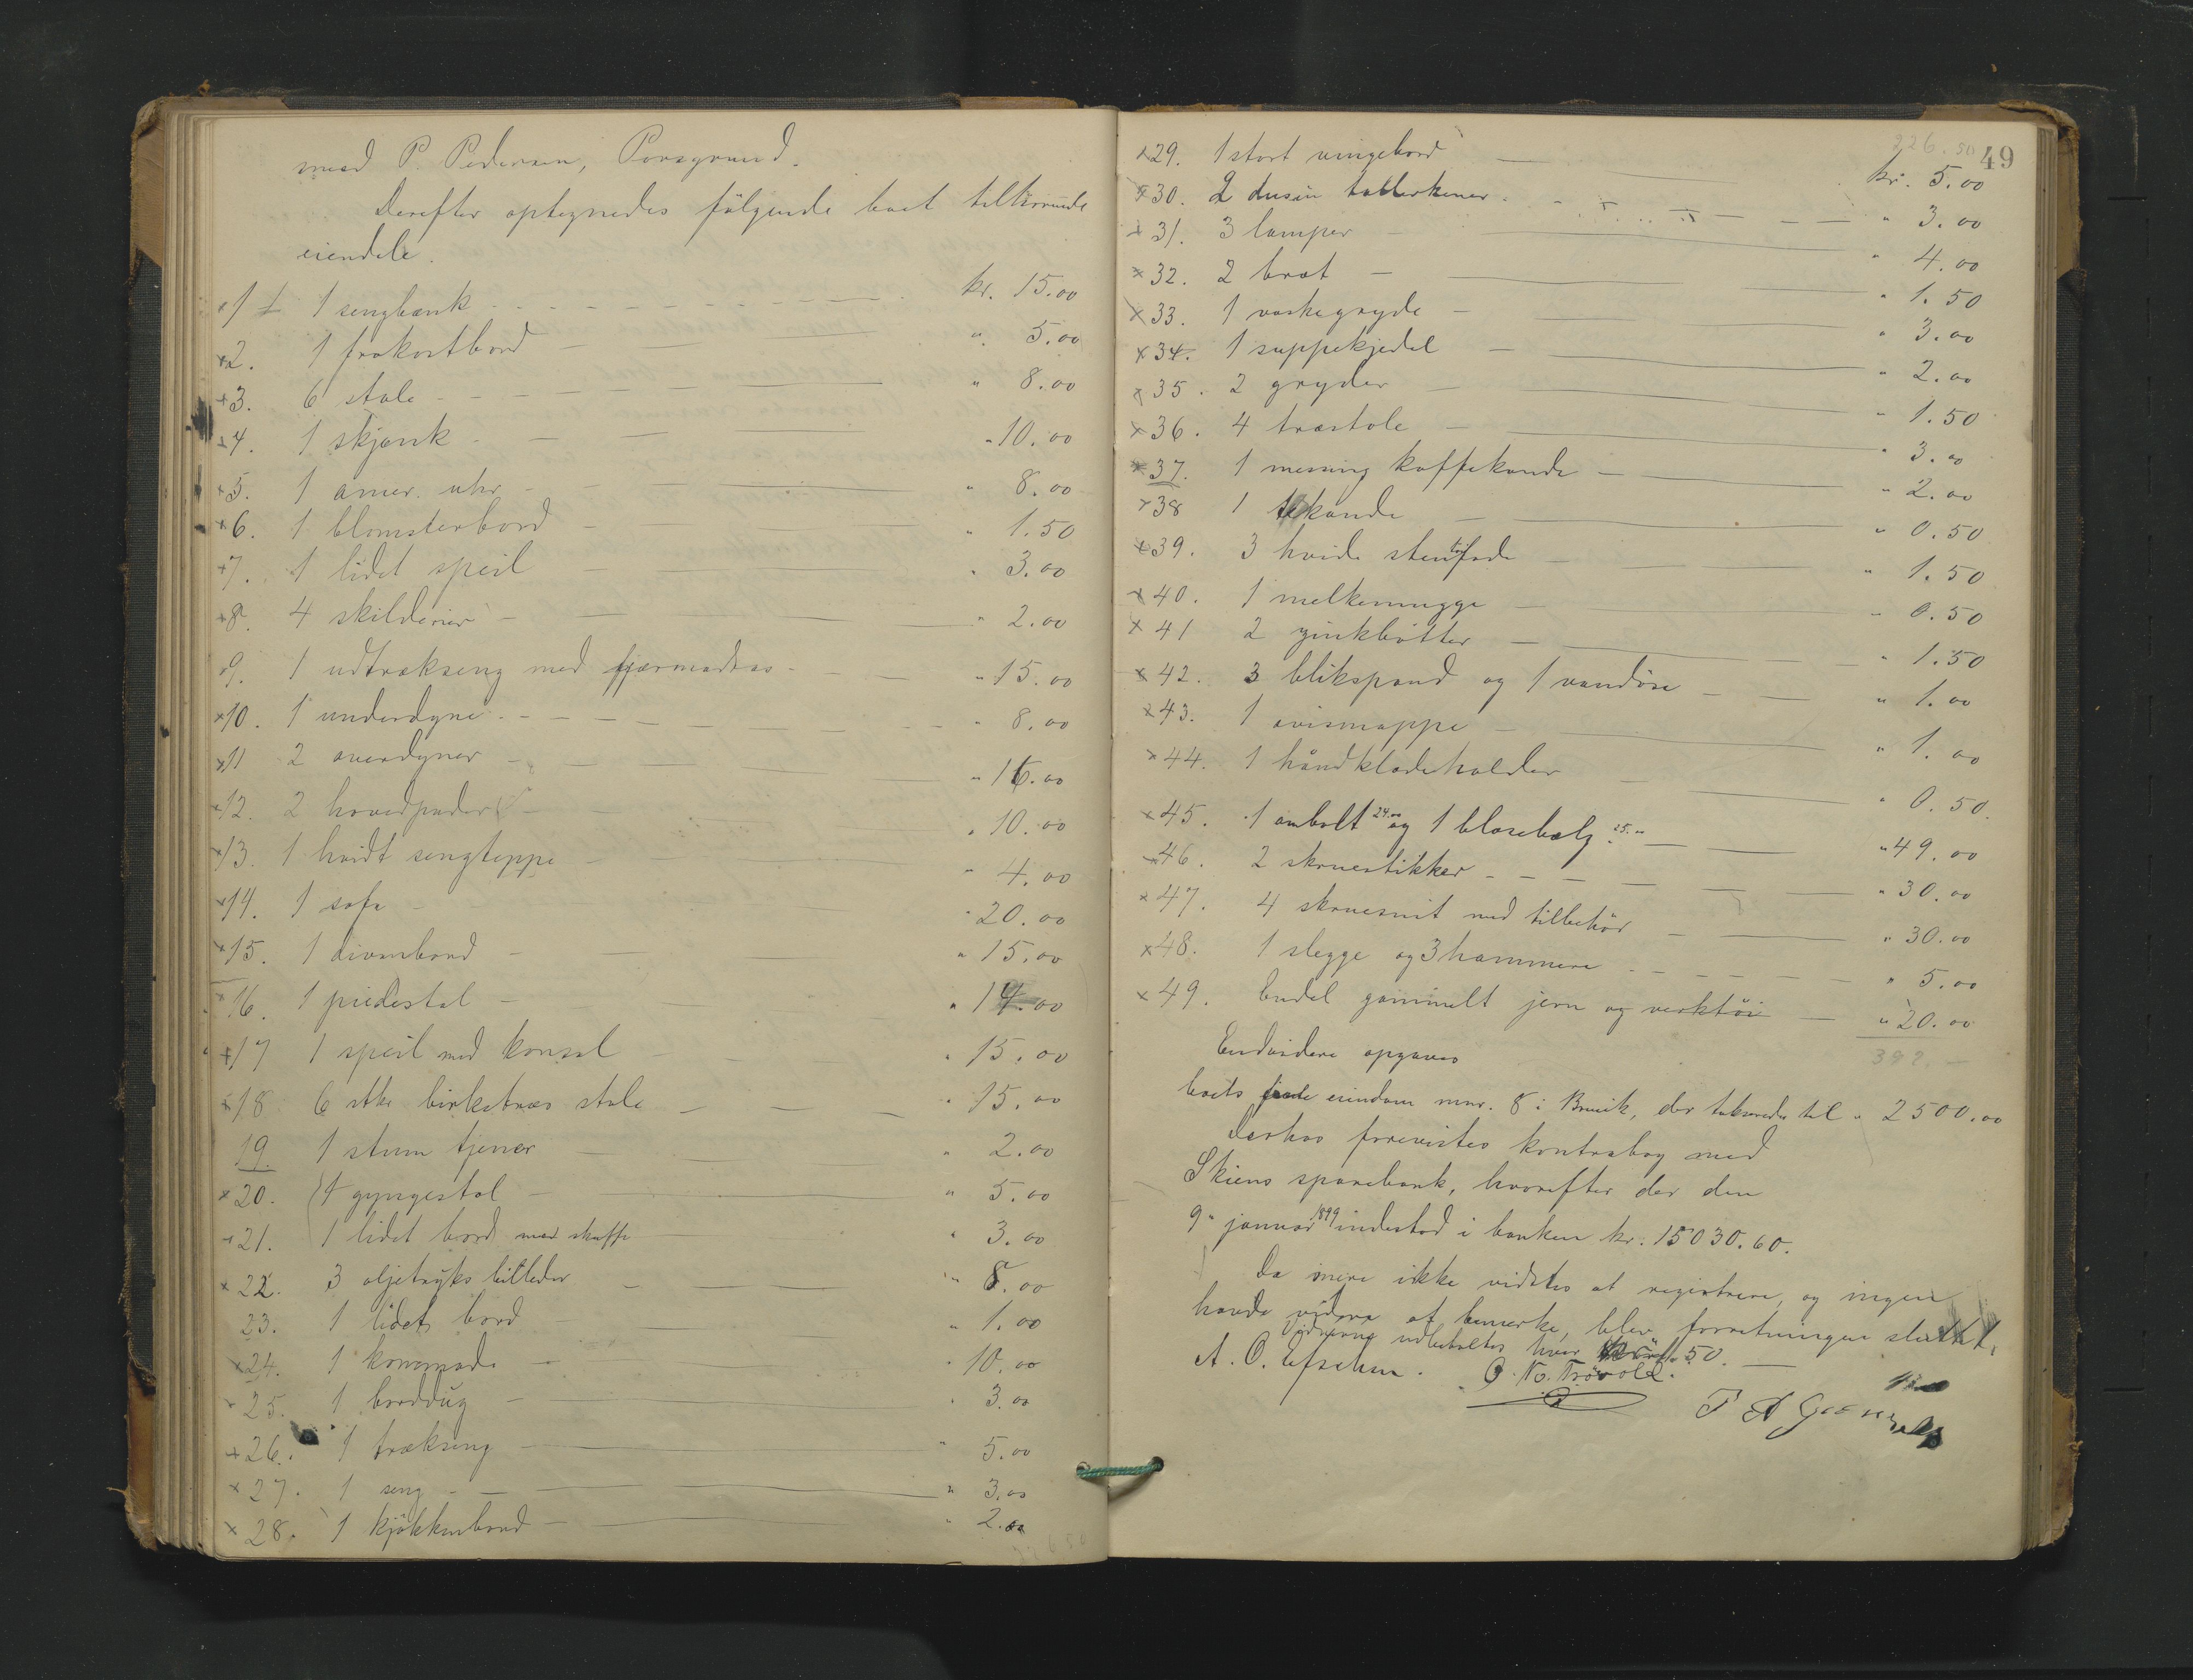 med P. Pedersen, Porsgrund.
Derefter optegnedes følgende boet tilhørende
eiendele.
×1 1 sengbænk - - - kr. 15.00
×2. 1 frokostbord - " 5.00
×3. 6 stole - - " 8.00
×4. 1 skjænk - " 10.00
×5. 1 amer. uhr - " 8.00
×6. 1 blomsterbord - " 1.50
×7. 1 lidet speil - " 3.00
×8. 4 skilderier - " 2.00
9. 1 udtrækseng med fjærmadras - " 15.00
×10. 1 underdyne - " 8.00
×11 2 overdyner - " 16.00
×12. 2 hovedpuder - " 10.00
×13. 1 hvidt sengteppe - " 4.00
×14. 1 sofa - " 20.00
×15. 1 divanbord - " 15.00
×16. 1 piedestal - " 14.00
×17 1 speil med konsol - " 15.00
×18 6 stkr birketræs stole - " 15.00
19. 1 stum tjener - " 2.00
×20. 1 gyngestol - " 5.00
×21. 1 lidet bord med skuffe " 3.00
×22. 3 oljetryks billeder - " 8.00
23. 1 lidet bord - " 1.00
×24. 1 kommode - " 10.00
×25. 1 borddug - " 3.00
×26. 1 trækseng - " 5.00
×27. 1 seng - " 3.00
×28. 1 kjøkkenbord - " 2.00
226.50
49
×29. 1 stort vingebord - kr. 5.00
×30. 2 dusin tallerkener - " 3.00
×31. 3 lamper - " 4.00
×32. 2 bræt - " 1.50
×33. 1 vaskegryde - " 3.00
×34. 1 suppekjedel - " 2.00
×35. 2 gryder - " 1.50
×36. 4 træstole - " 3.00
×37. 1 messing kaffekande - " 2.00
×38 1 tekande - " 0.50
×39. 3 hvide stentøifade - " 1.50
×40. 1 melkemugge - " 0.50
×41 2 zinkbøtter - " 1.50
×42. 3 blikspand og 1 vandøse - " 1.00
×43. 1 avismappe - " 1.00
×44. 1 håndklædeholder - " 0.50
×45. 1 ambolt 24.00 og 1 blæsebælg 25.00 - " 49.00
×46. 2 skruestikker - " 30.00
×47. 4 skruesnit med tilbehør - " 30.00
×48. 1 slegge og 3 hammere - " 5.00
×49. Endel gammelt jern og verktøi - " 20.00
Endvidere opgaves
boets faste eiendom mnr. 8 i Brevik, der takseredes til " 2500.00
Derhos forevistes kontrabog med
Skiens sparebank, hvorefter der den
9de januar 1899 indestod i banken kr. 15030.60.
Da mere ikke vidstes at registrere, og ingen
havde videre at bemerke, blev forretningen sluttet.
Vidnerne udbetaltes hver 50.
A. O.
O. N.
P A